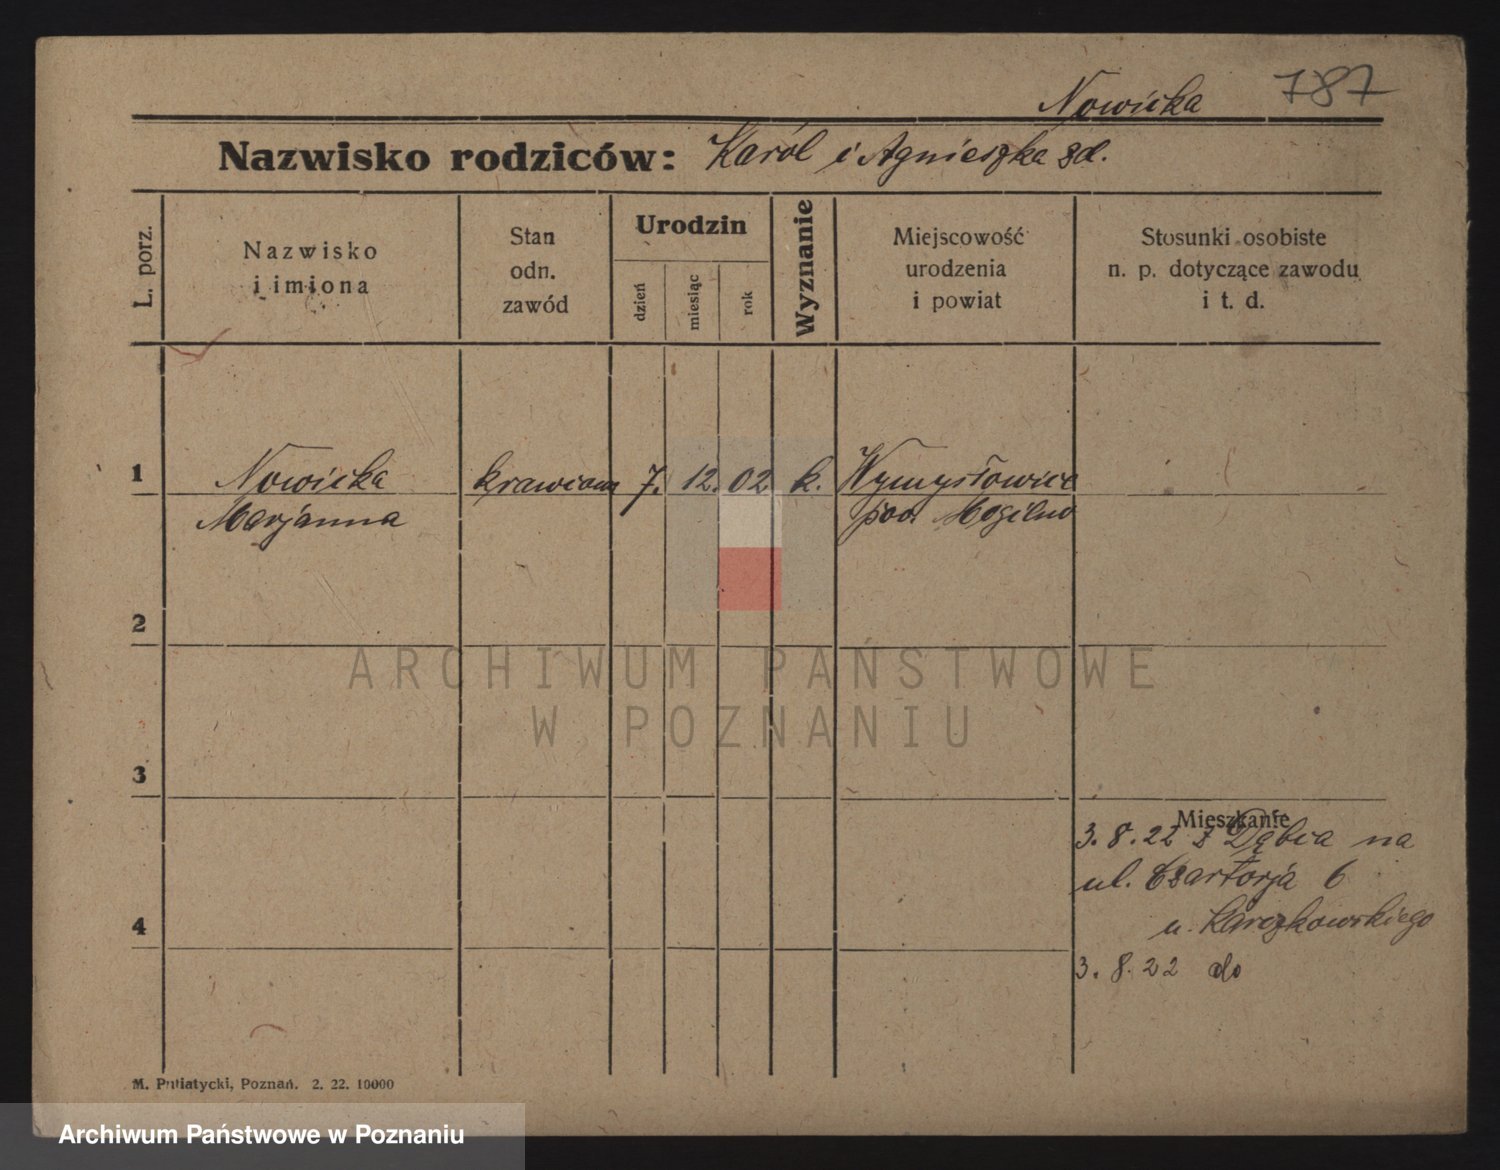 Nowicka 787
Nazwisko rodziców: Karól i Agnieszka zd.
L. porz.
Nazwisko
i imiona
Stan
odn.
zawód
Urodzin
dzień
miesiąc
rok
Wyznanie
Miejscowość
urodzenia
i powiat
Stosunki osobiste
n. p. dotyczące zawodu
i t. d.
1 Nowicka krawcowa 7. 12. 02 k. Wymysłowice
Marjanna pow. Mogilno
2
ARCHIWUM PAŃSTWOWE
W POZNANIU
3
Mieszkanie
3. 8. 22 z Dąbia na
ul. Czartorja 6
u. Karczkowskiego
4
3. 8. 22 do
M. Putiatycki, Poznań. 2. 22. 10000
Archiwum Państwowe w Poznaniu